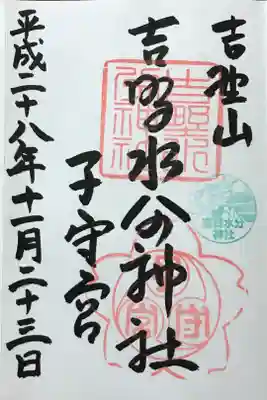 吉野山
吉野水分神社
子守宮
平成二十八年十一月二十三日